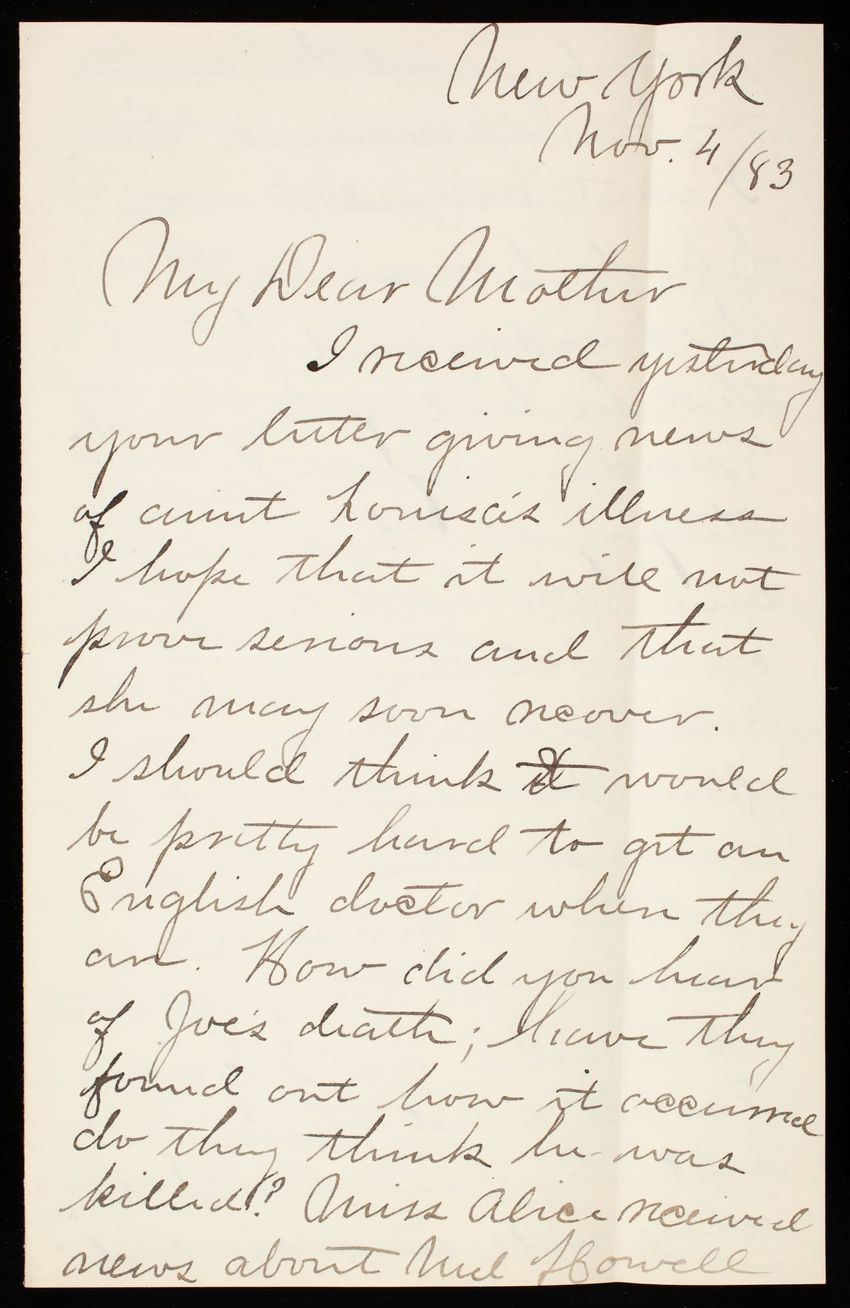 New York
Nov. 4/83
My Dear Mother
I received yesterday
your letter giving news
of aunt Louisa's illness
I hope that it will not
prove serious and that
she may soon recover.
I should think it would
be pretty hard to get an
English doctor when they
are. How did you hear
of Joe's death; have they
found out how it occurred
do they think he was
killed? Miss Alice received
news about Ned Howell